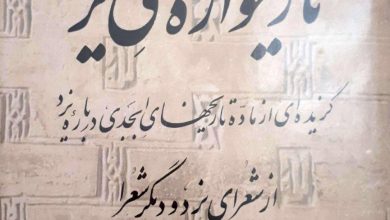 گزیده‌ای از مادّه تاریخهای ابجدی درباره یزد
از شعرای یزد و دیگر شعرا